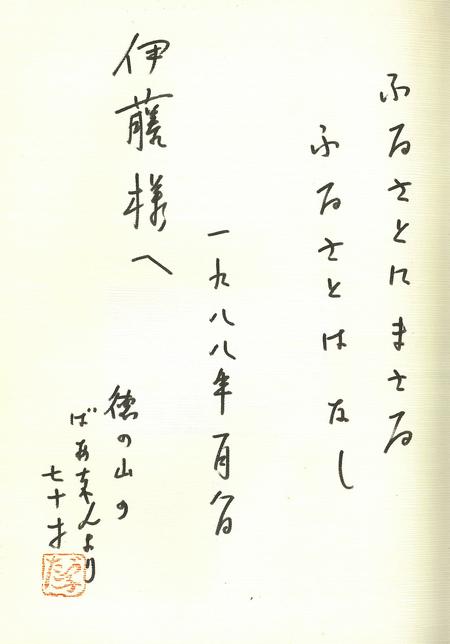 ふるさとにまさる
ふるさとはなし
一九八八年
伊藤様へ
徳の山の
ばあちゃんより
七十才